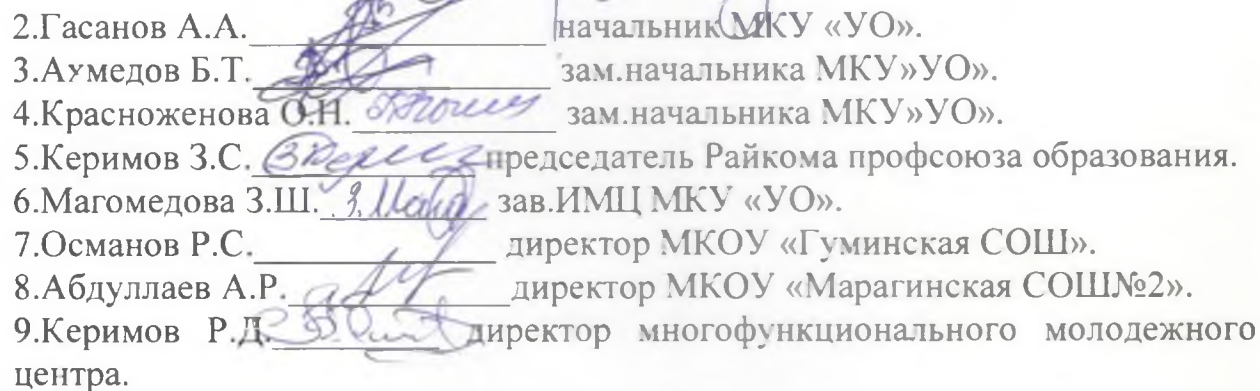 2.Гасанов А.А. начальник МКУ «УО».
3.Ахмедов Б.Т. зам.начальника МКУ»УО».
4.Красноженова О.Н. зам.начальника МКУ»УО».
5.Керимов З.С. председатель Райкома профсоюза образования.
6.Магомедова З.Ш. зав.ИМЦ МКУ «УО».
7.Османов Р.С. директор МКОУ «Гуминская СОШ».
8.Абдуллаев А.Р. директор МКОУ «Марагинская СОШ№2».
9.Керимов Р.Д. директор многофункционального молодежного
центра.